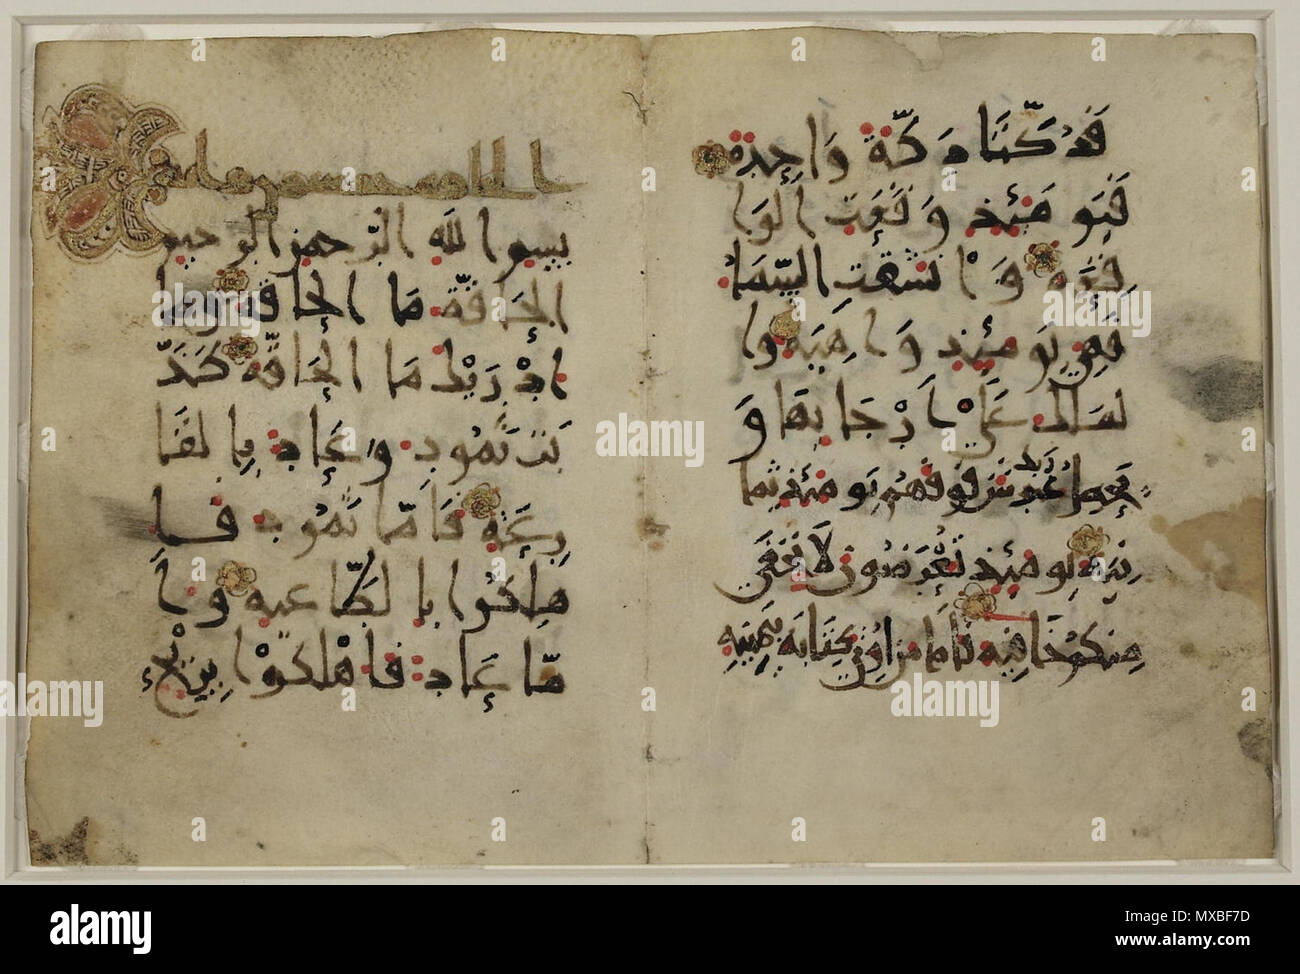 فدكتا دكة واحدة
فيومئذ وقعت الوا
قعة وانشقت السما
فهي يومئذ واهية وا
لملك على ارجائها و
يحمل عرش ربك فوقهم يومئذ ثما
نية يومئذ تعرضون لا تخفى
منكم خافية فاما من اوتي كتابه بيمينه
بسم الله الرحمن الرحيم
الحاقة ما الحاقة وما
ادريك ما الحاقة كذ
بت ثمود وعاد بالقا
رعة فاما ثمود فا
هلكوا بالطاغية وا
ما عاد فاهلكوا بريح
alamy
Image ID: MXBF7D
www.alamy.com